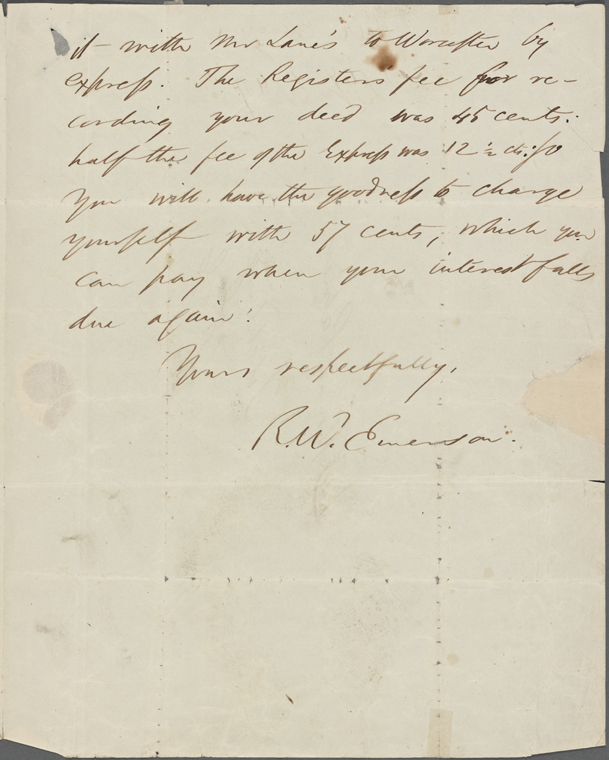 it with Mr Lane's to Worcester by
express. The Registers fee for re-
cording your deed was 45 cents:
half the fee of the Express was 12 ½ cts: so
you will have the goodness to charge
yourself with 57 cents, which you
can pay when your interest falls
due again.
Yours respectfully,
R.W. Emerson.